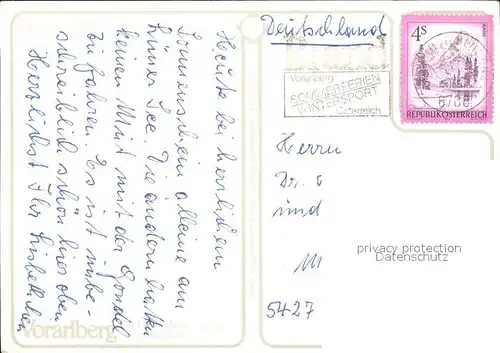 Heute bei herrlichem
Sonnenschein alleine am
Lüner See. Die andern hatten
keinen Mut mit der Gondel
zu fahren. Es ist unbe-
schreiblich schön hier oben
Herzlichst Ihr
Vorarlberg
Deutschland
4S
REPUBLIK ÖSTERREICH
6700
Vorarlberg
SOMMERFERIEN
WINTERSPORT
Österreich
Herrn
Dr.
und
privacy protection
Datenschutz
5427